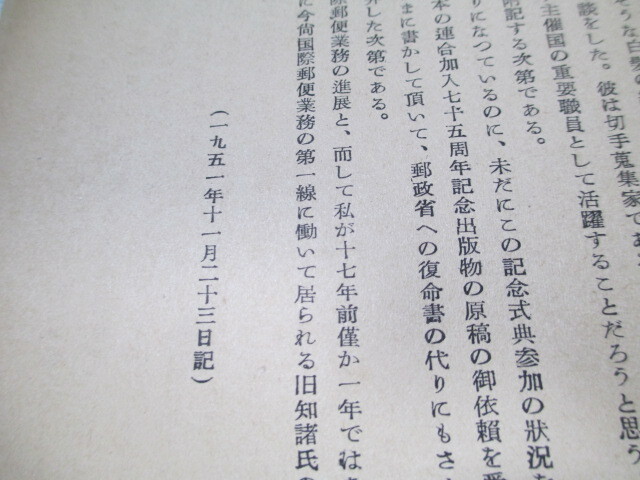 そうな白髪
談をした。彼は切手蒐集家であ
主催国の重要職員として活躍することだろうと思う
附記する次第である。
りになつているのに、未だにこの記念式典参加の狀況を
本の連合加入七十五周年記念出版物の原稿の御依頼を
まに書かして頂いて、郵政省への復命書の代りにもさ
した次第である。
際郵便業務の進展と、而して私が十七年前僅か一年では
に今尙国際郵便業務の第一線に働いて居られる旧知諸氏の
(一九五一年十一月二十三日記)